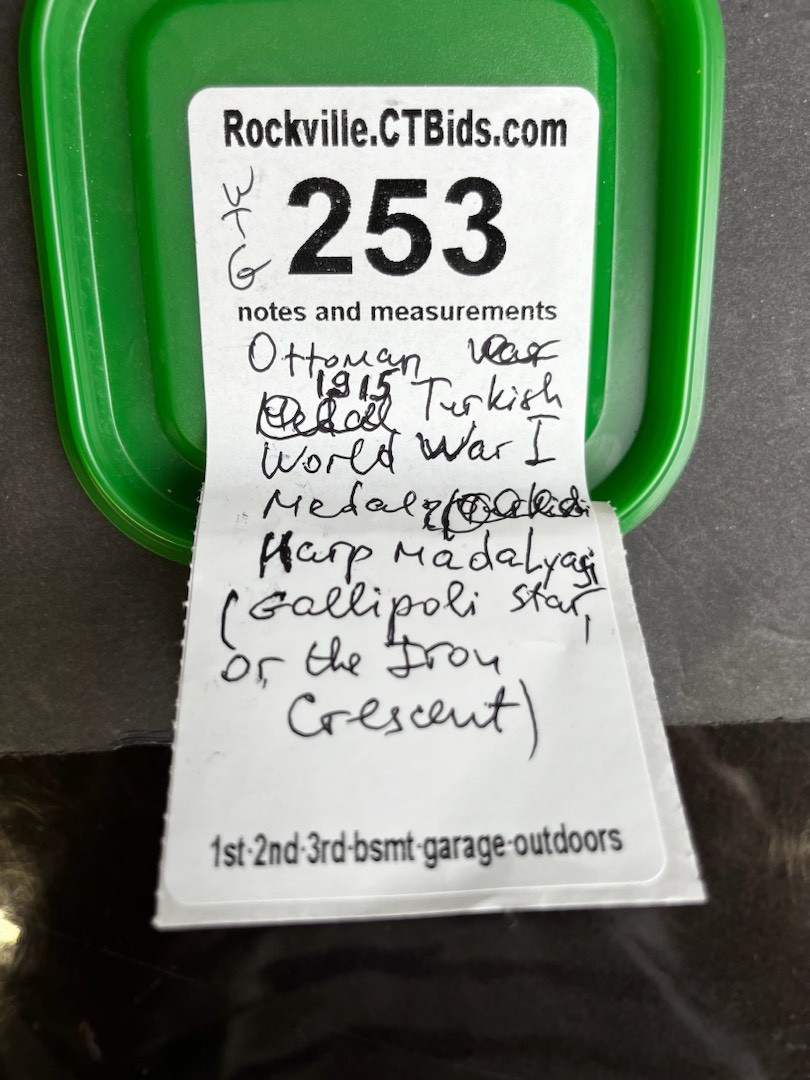 Rockville.CTBids.com
253
notes and measurements
Ottoman
1915 Turkish
World War I
Medal
Harp Madalyasi
(Gallipoli Star,
or the Iron
Crescent)
1st-2nd-3rd-bsmt-garage-outdoors